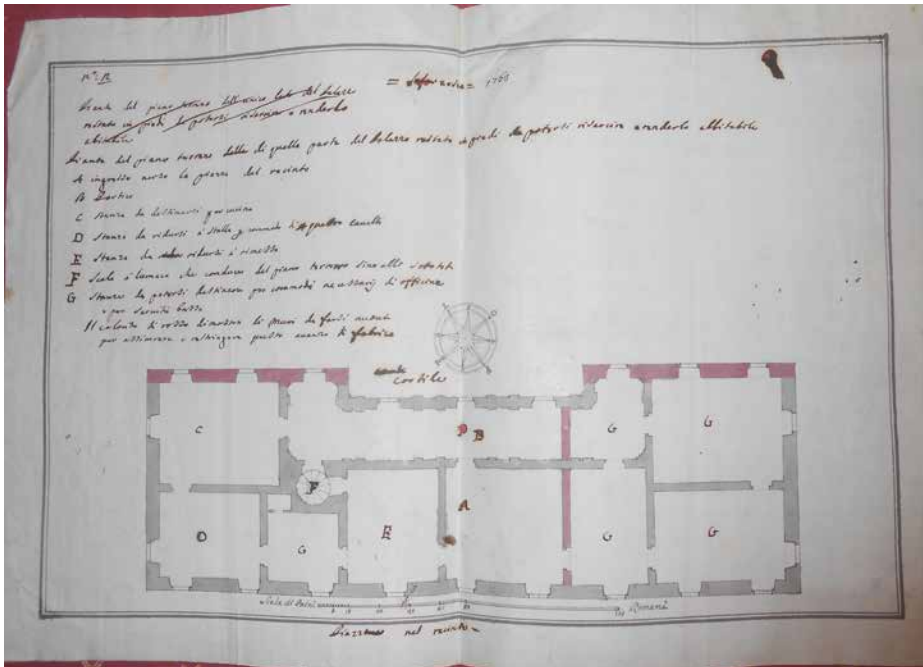 n.º 2.
Pianta del piano terreno dell'unico lato del Palazzo
restato in piedi da potersi risarcire e renderlo
abitabile
= 1703
Pianta del piano terreno di quella parte del Palazzo restata in piedi da potersi risarcire e renderlo abbitabile
A ingresso verso la piazza del recinto
B Portico
C Stanza da destinarsi per cucina
D Stanza da ridursi à stalla per commodo di quattro cavalli
E Stanza da ridursi à rimessa
F Scala à lumaca che conduce dal piano terreno sino alle
G Stanze da potersi destinare per commodi necessarij di officine
e per servitù bassa
Il colorito di rosso dimostra li Muri da farsi nuovi
per assicurare e restringere questo avanzo di fabrica
cortile
C
G
G
B
F
A
D
G
E
G
G
Scala di Palmi
Romani
Piazza nel recinto